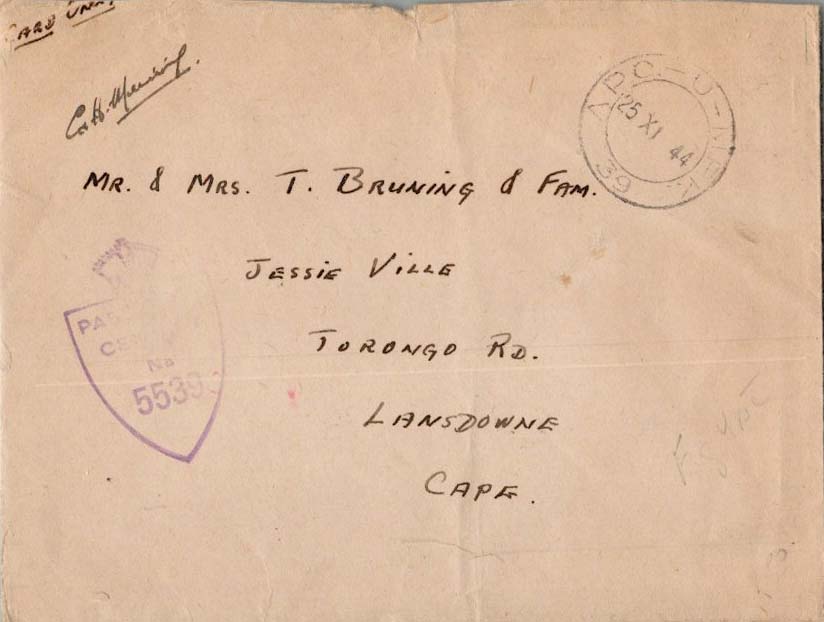 CARD ONLY
APO-U-MPK 39
25 XI 44
MR. & MRS. T. BRUNING & FAM.
JESSIE VILLE
TORONGO RD.
LANSDOWNE
CAPE.
PAS
CE
No
5539
Egypt